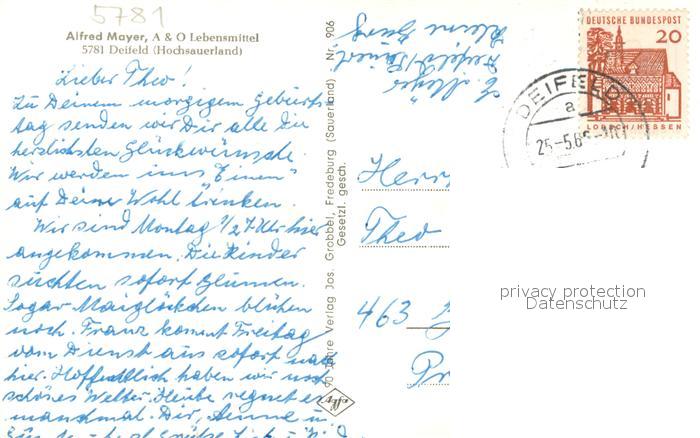 5781
Alfred Mayer, A & O Lebensmittel
5781 Deifeld (Hochsauerland)
Lieber Theo!
Zu Deinem morgigem Geburts
tag senden wir Dir alle die
herzlichsten Glückwünsche.
Wir werden ins "Einen"
auf Deine Wohl trinken.
Wir sind Montag 1/2 7 Uhr hier
angekommen. Die Kinder
suchten sofort Blumen.
Sogar Maiglöckchen blühen
noch. Franz kommt Freitag
vom Dienst aus sofort nach
hier. Hoffentlich haben wir noch
schönes Wetter. Heute regnet es
manchmal. Dir, Aenne u.
90 Jahre Verlag Jos. Grobbel, Fredeburg (Sauerland) Nr. 906
Gesetzl. gesch.
Agfa
DEUTSCHE BUNDESPOST
20
LORSCH/HESSEN
DEIFELD
a
25-5.6
Herrn
Theo
463
privacy protection
Datenschutz